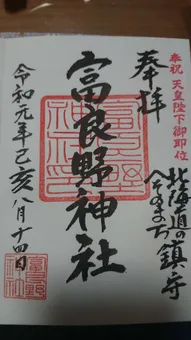 奉祝 天皇陛下御即位
奉拝
北海道の鎮守
へそのまち
富良野神社
令和元年己亥八月十四日
富良野
神社印